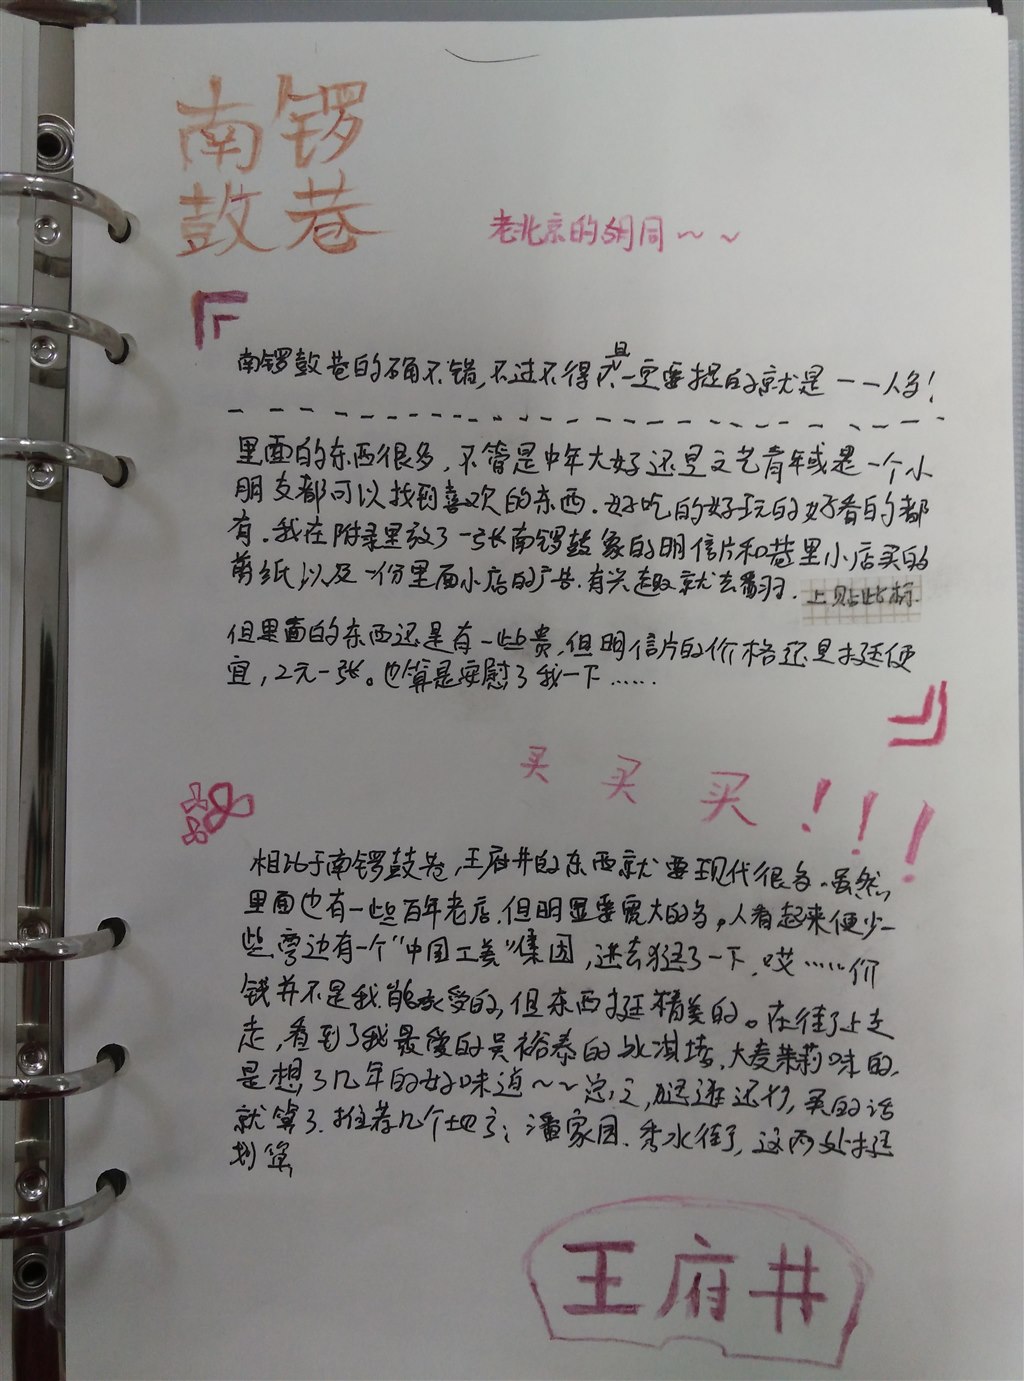 南锣
鼓巷
老北京的胡同~~
南锣鼓巷的确不错,不过不得不且一定要提的就是——人多!
里面的东西很多,不管是中年大好还是文艺青年或是一个小
朋友都可以找到喜欢的东西.好吃的好玩的好看的都
有.我在附录里放了一张南锣鼓象的明信片和巷里小店买的
剪纸以及一份里面小店的广告.有兴趣就去翻羽.上贴此标.
但里面的东西还是有一些贵,但明信片的价格还是挺便
宜,2元一张。也算是安慰了我一下……
买 买 买!!!
相比于南锣鼓巷,王府井的东西就要现代很多.虽然,
里面也有一些百年老店.但明显要宽大的多,人看起来便少一
些.旁边有一个“中国工美”集团,进去逛了一下.哎……价
钱并不是我能承受的,但东西挺精美的。在街上走
走,看到了我最爱的吴裕泰的冰淇淋,大麦茉莉味的,
是想了几年的好味道~~总之,逛逛还行,买的话
就算了.推荐几个地方:潘家园.秀水街,这两处挺
划算,
王府井